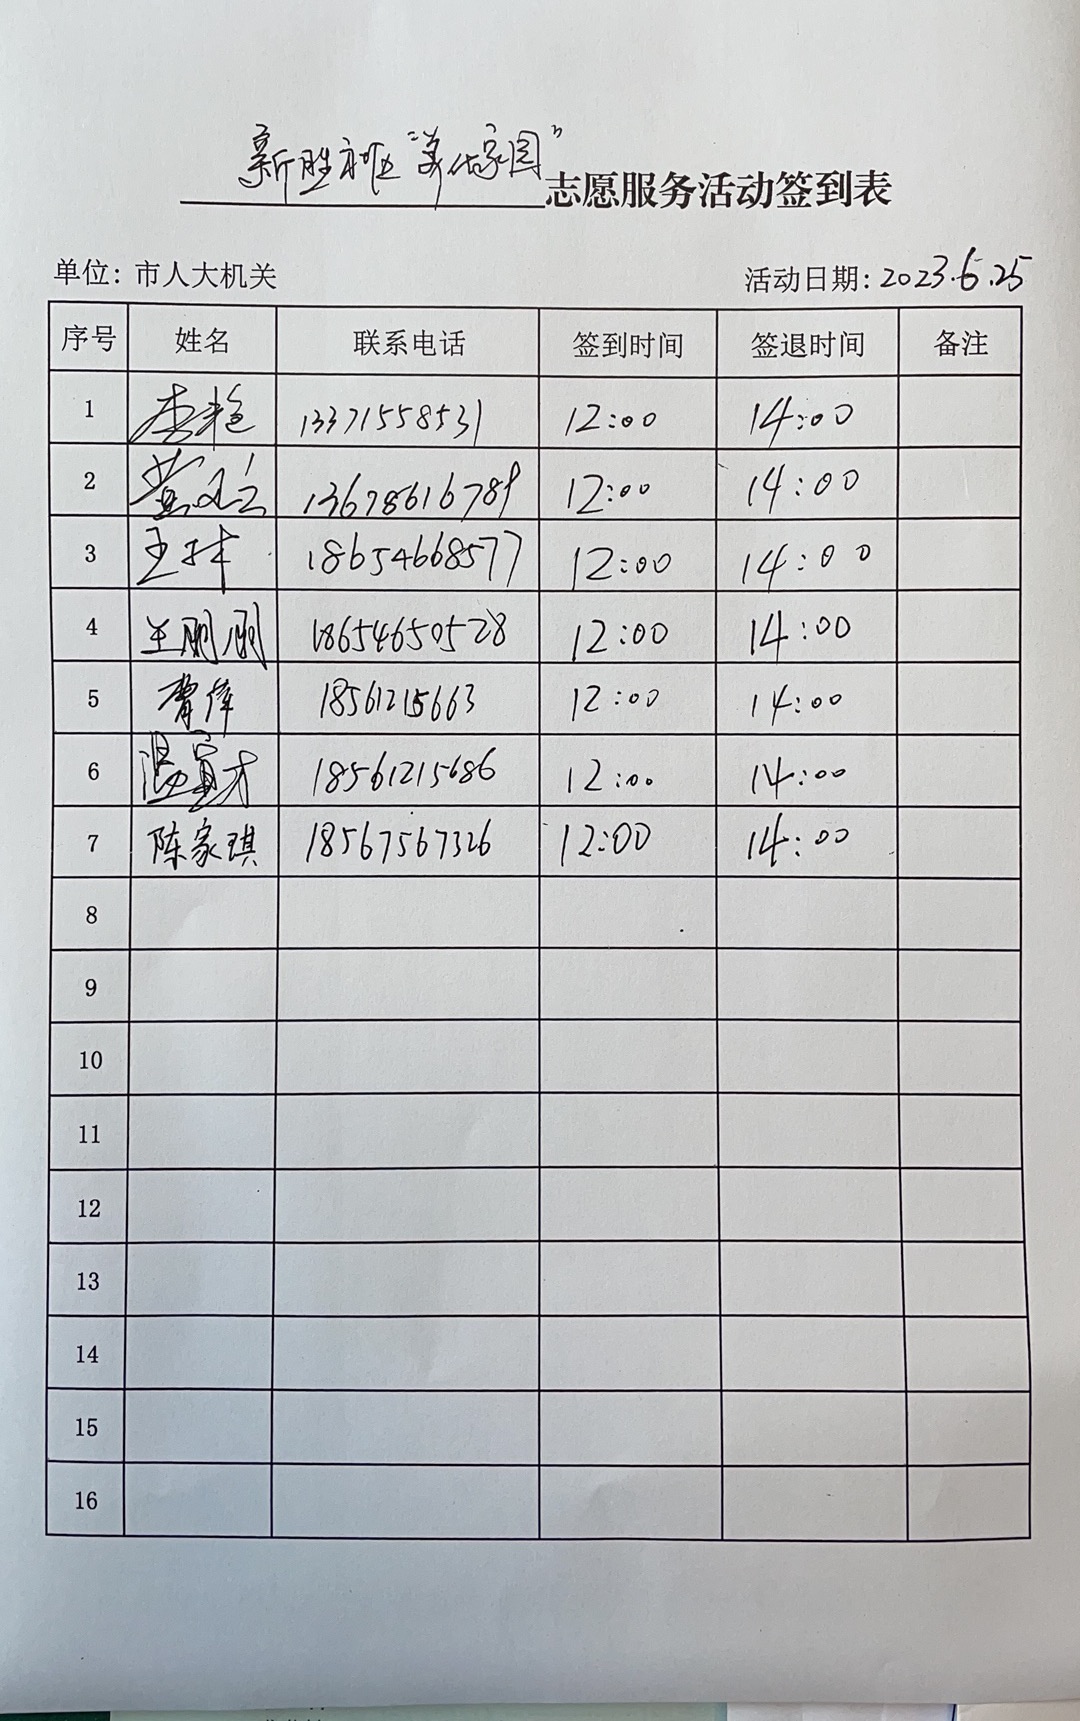 新胜社区“美化家园”志愿服务活动签到表
单位：市人大机关 活动日期：2023.6.25
序号 姓名 联系电话 签到时间 签退时间 备注
1 李艳 13371558531 12:00 14:00
2 13678616789 12:00 14:00
3 王林 18654668577 12:00 14:00
4 王鹏刚 18654650528 12:00 14:00
5 18561215663 12:00 14:00
6 18561215686 12:00 14:00
7 陈家琪 18567567326 12:00 14:00
8
9
10
11
12
13
14
15
16